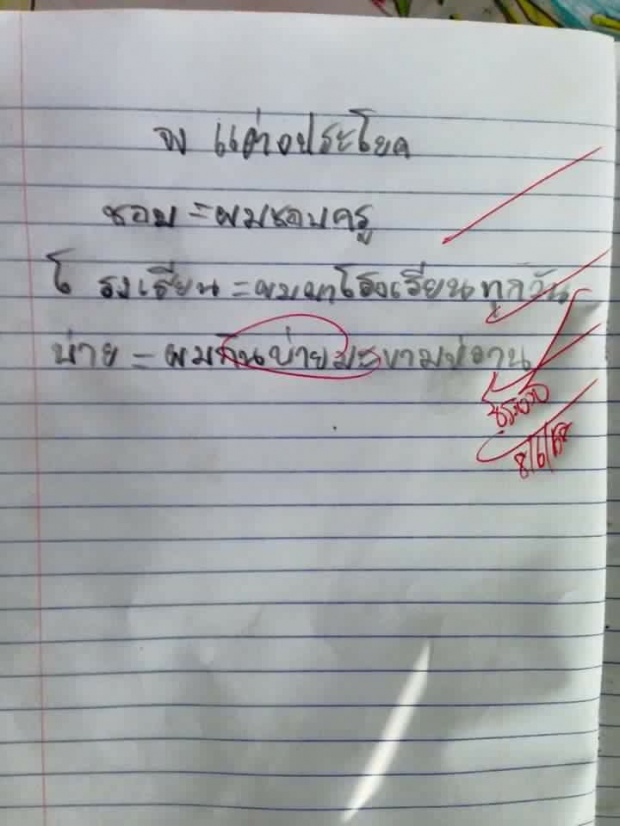 จง แต่งประโยค
ชอบ = ผมชอบครู
โ รงเรียน = ผมมาโรงเรียนทุกวัน
บ่าย = ผมกินบ่ายมะขามหวาน
8/6/68